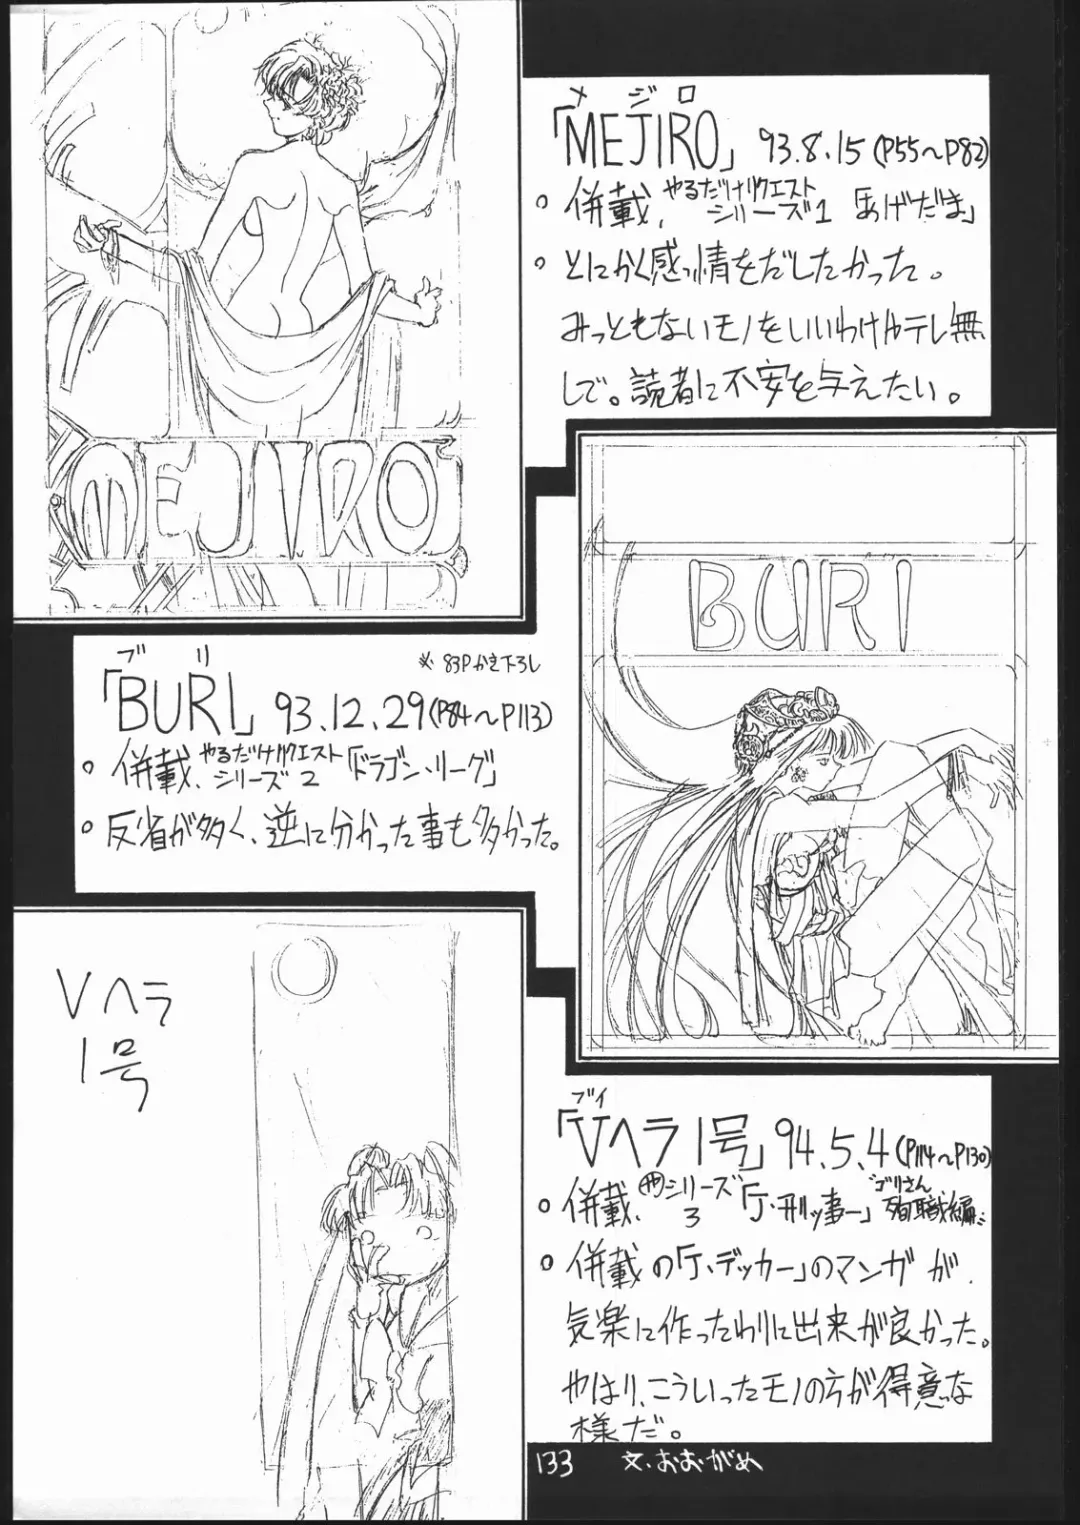 MEJIRO
メジロ
「MEJIRO」 93.8.15(P55〜P82)
○併載、やるだけリクエストシリーズ1「あげだま」
○とにかく感情をだしたかった。
みっともないモノをいいわけやテレ無
しで。読者に不安を与えたい。
BURI
ブリ ※83Pかき下ろし
「BURI」 93.12.29(P84〜P113)
○併載、やるだけリクエストシリーズ2「ドラゴン・リーグ」
○反省が多く、逆に分かった事も多かった。
Vヘラ
1号
ブイ
「Vヘラ1号」 94.5.4(P114〜P130)
○併載、㋳シリーズ3「J・刑ッ事ー」ゴリさん殉職編
○併載の「J・デッカー」のマンガが、
気楽に作ったわりに出来が良かった。
やはり、こういったモノの方が得意な
様だ。
133 文・おおがめ